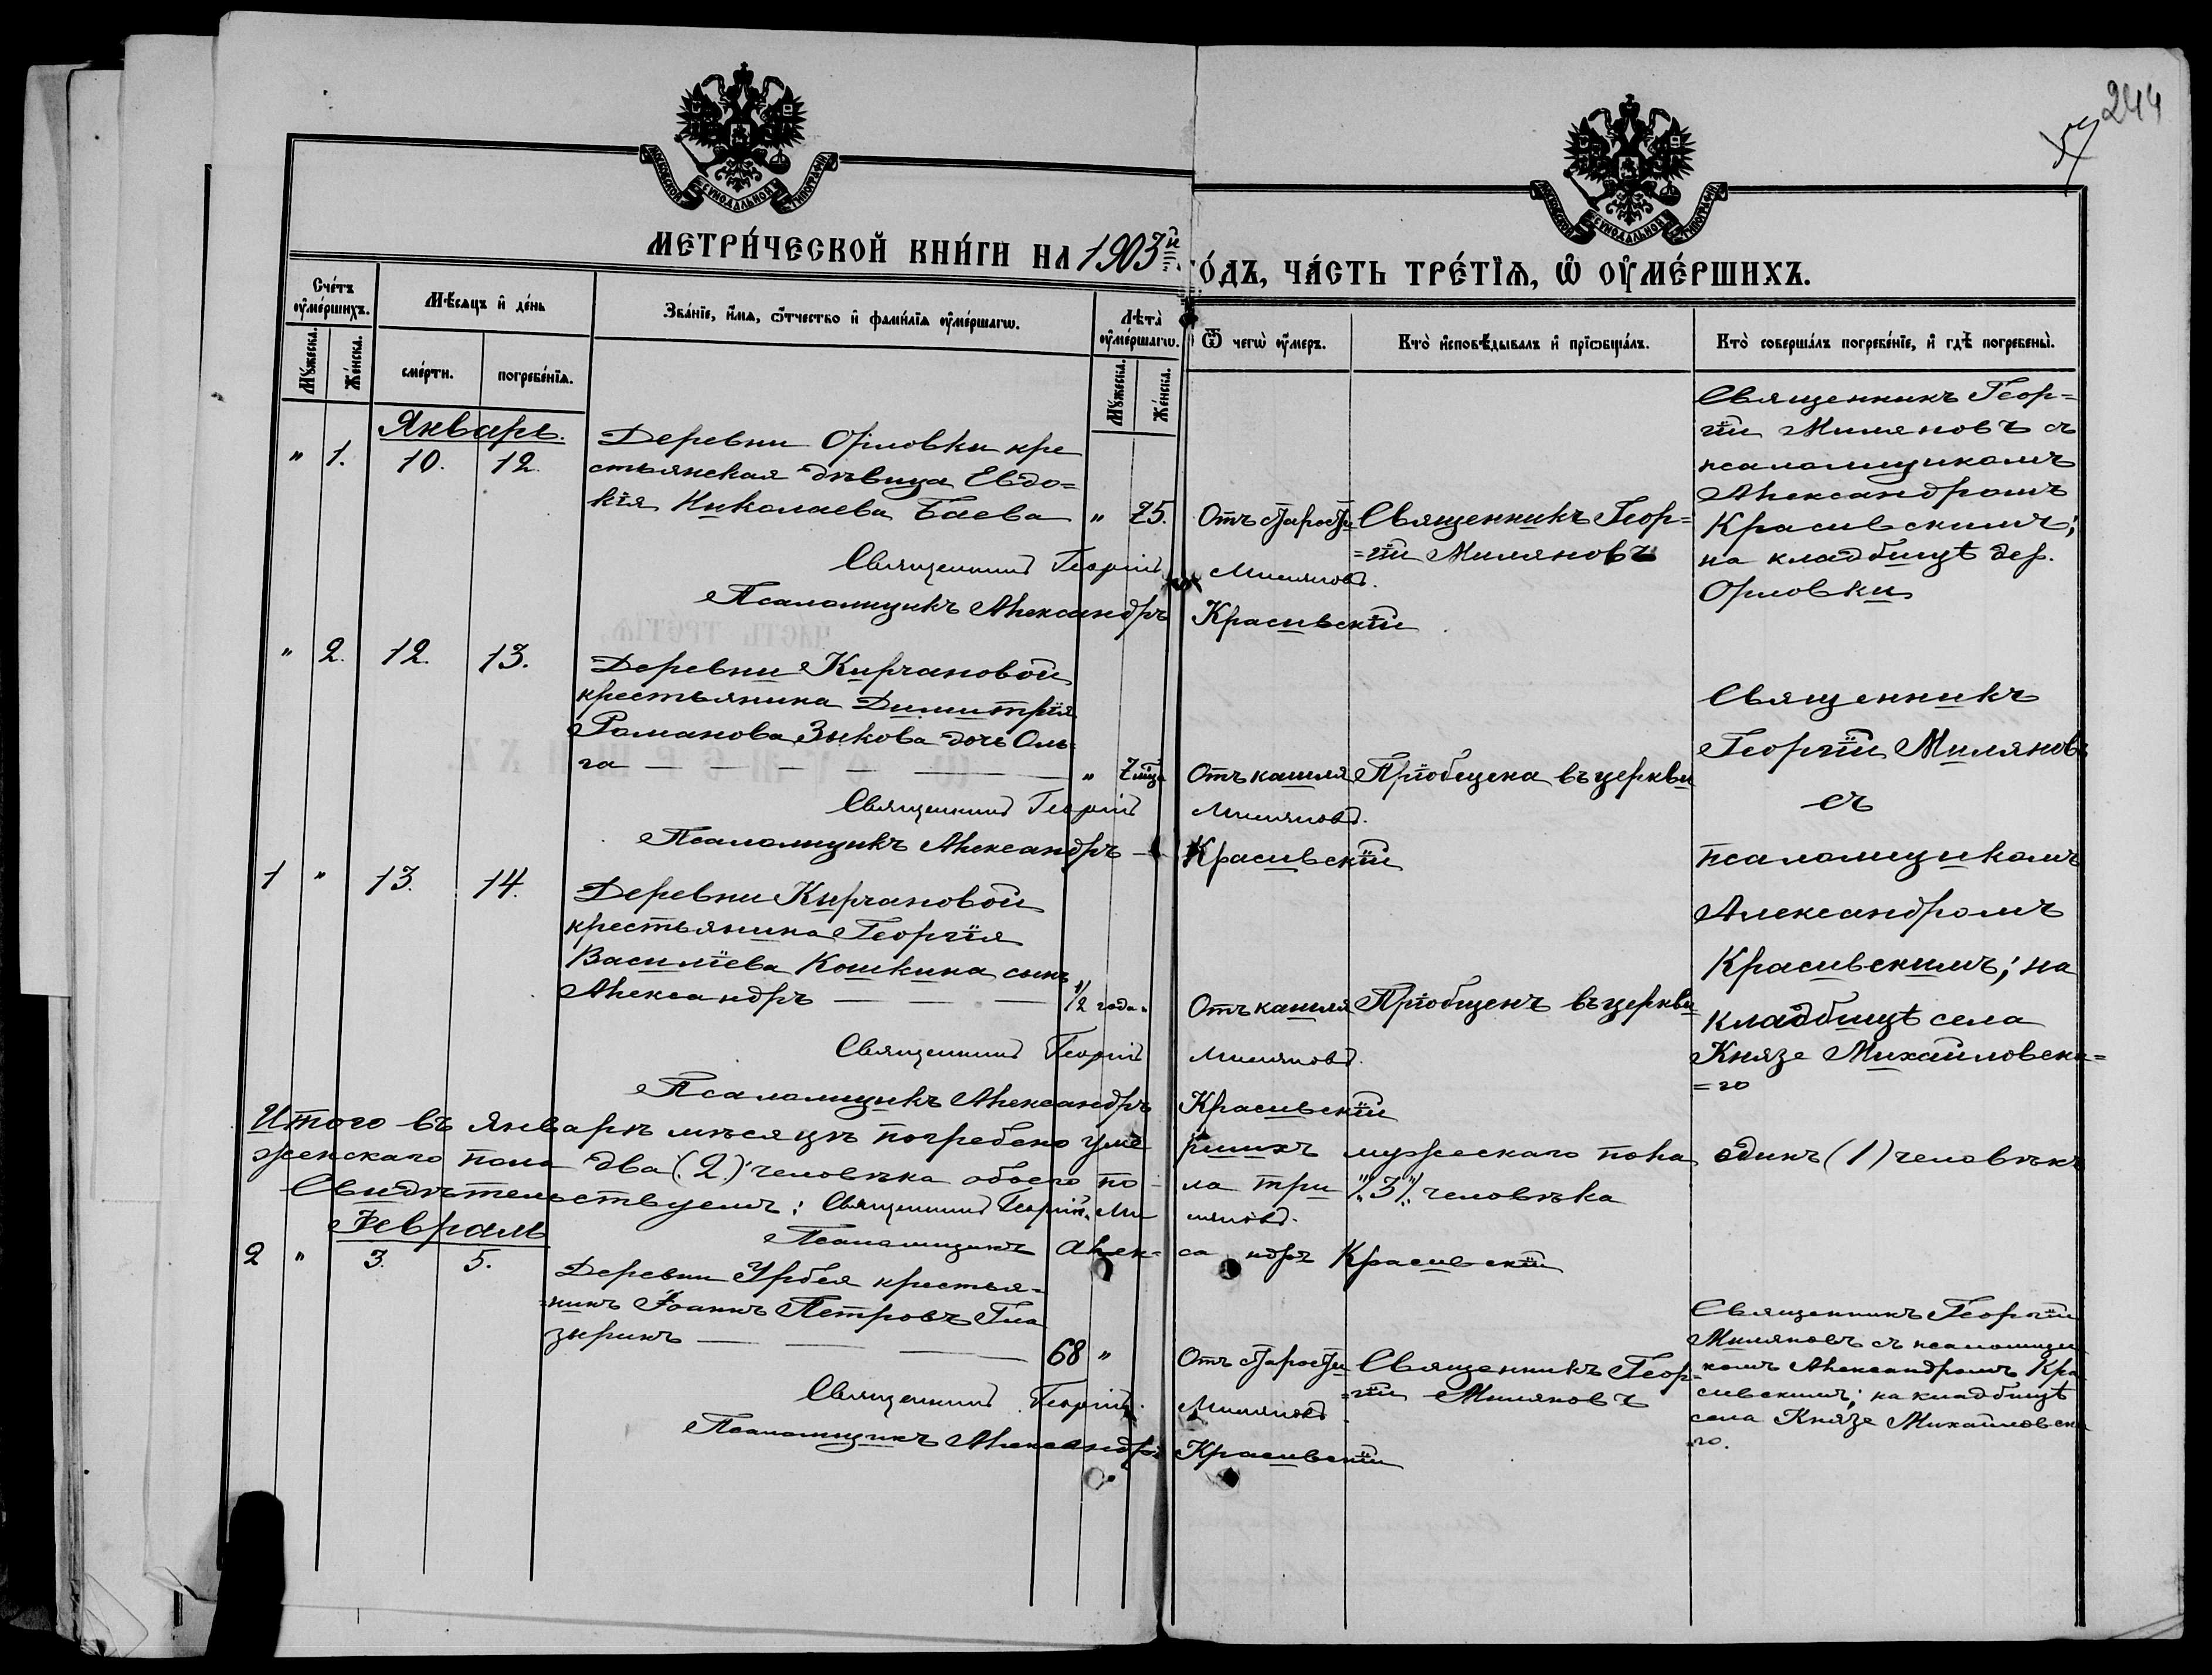 244
57
МОСКОВСКОЙ СѴНОДАЛЬНОЙ ТИПОГРАФІИ
МОСКОВСКОЙ СѴНОДАЛЬНОЙ ТИПОГРАФІИ
МЕТРИ́ЧЕСКОЙ КНИ́ГИ НА 1903й ГО́ДЪ, ЧА́СТЬ ТРЕ́ТІѦ, Ѡ҆ ОУ҆МЕ́РШИХЪ.
Сче́тъ оу҆ме́ршихъ.
Мꙋ́жеска.
Же́нска.
Мѣ́сяцъ и҆ де́нь
сме́рти.
погребе́нїѧ.
Зва́нїе, и҆́мѧ, ѻ҆́тчество и҆ фами́лїѧ оу҆ме́ршагѡ.
Лѣта̀ оу҆ме́ршагѡ.
Мꙋ́жеска.
Же́нска.
Ѿ чегѡ̀ оу҆́меръ.
Кто̀ и҆сповѣ́дывалъ и҆ прїѡбща́лъ.
Кто̀ соверша́лъ погребе́нїе, и҆ гдѣ̀ погребены̀.
Январь.
" 1. 10. 12.
Деревни Орловки кре
стьянская дѣвица Евдо=
кія Николаева Баева " 75.
Отъ старости
Священникъ Геор=
=гій Миляновъ
Священникъ Геор=
гій Миляновъ съ
псаломщикомъ
Александромъ
Красивскимъ;
на кладбищѣ дер.
Орловки
Священникъ Георгій Миляновъ.
Псаломщикъ Александръ Красивскій
" 2. 12. 13.
Деревни Кирчановой
крестьянина Димитрія
Романова Зыкова дочь Оль
га — — — — — " 7 мца
Отъ кашля
Пріобщена въ церкви
Священникъ Георгій Миляновъ.
Псаломщикъ Александръ — Красивскій
1 " 13. 14.
Деревни Кирчановой
крестьянина Георгія
Василіева Кошкина сынъ
Александръ — — — 1/2 года "
Отъ кашля
Пріобщенъ въ церкви
Священникъ
Георгій Миляновъ
съ
псаломщикомъ
Александромъ
Красивскимъ; на
кладбищѣ села
Князе Михайловска=
=го
Священникъ Георгій Миляновъ.
Псаломщикъ Александръ Красивскій
Итого въ январѣ мѣсяцѣ погребено умершихъ мужескаго пола одинъ (1) человѣкъ
женскаго пола два (2) человѣка обоего пола три /3/ человѣка
Свидѣтельствуемъ: Священникъ Георгій Миляновъ.
Псаломщикъ Алек=сандръ Красивскій
Февраль
2 " 3. 5.
Деревни Урбея крестья=
=нинъ Іоаннъ Петровъ Гла
зыринъ — — 68 "
Отъ старости
Священникъ Геор=
=гій Миляновъ
Священникъ Георгій
Миляновъ съ псаломщи
комъ Александромъ Кра
сивскимъ; на кладбищѣ
села Князе Михайловска
го.
Священникъ Георгій Миляновъ
Псаломщикъ Александръ Красивскій